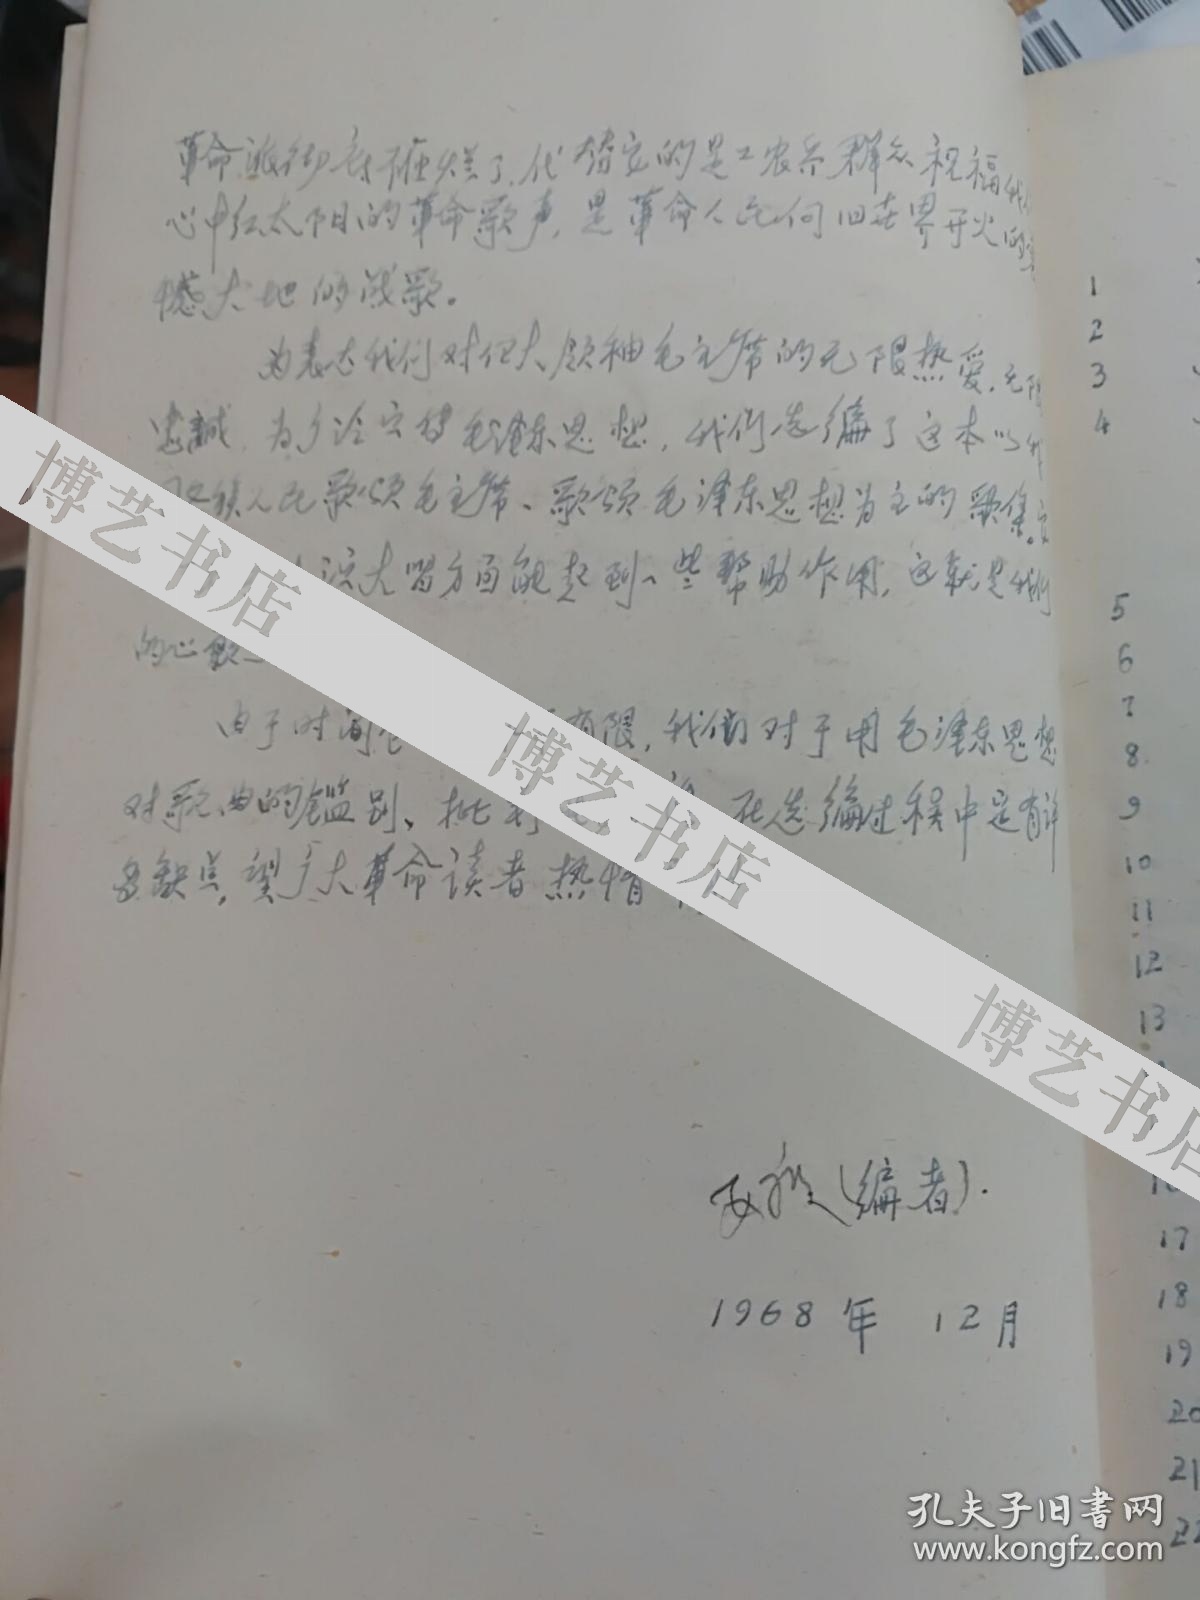 革命派彻底砸烂了，代替它的是工农兵群众祝福我们
心中红太阳的革命歌声，是革命人民向旧世界开火的
憾大地的战歌。
为表达我们对伟大领袖毛主席的无限热爱，无限
忠誠，为了宣传毛泽东思想，我们选编了这本以我
族人民歌颂毛主席、歌颂毛泽东思想为主的歌集。
大唱方面能起到一些帮助作用，这就是我们
的心愿
由于时间 有限，我们对于用毛泽东思想
对歌曲的鑑别、批判 在选编过程中定有许
多缺点，望广大革命读者热情
（编者）.
1968年 12月
1
2
3
4
5
6
7
8
9
10
11
12
13
17
18
19
20
21
22
博艺书店
博艺书店
博艺书店
孔夫子旧书网
www.kongfz.com